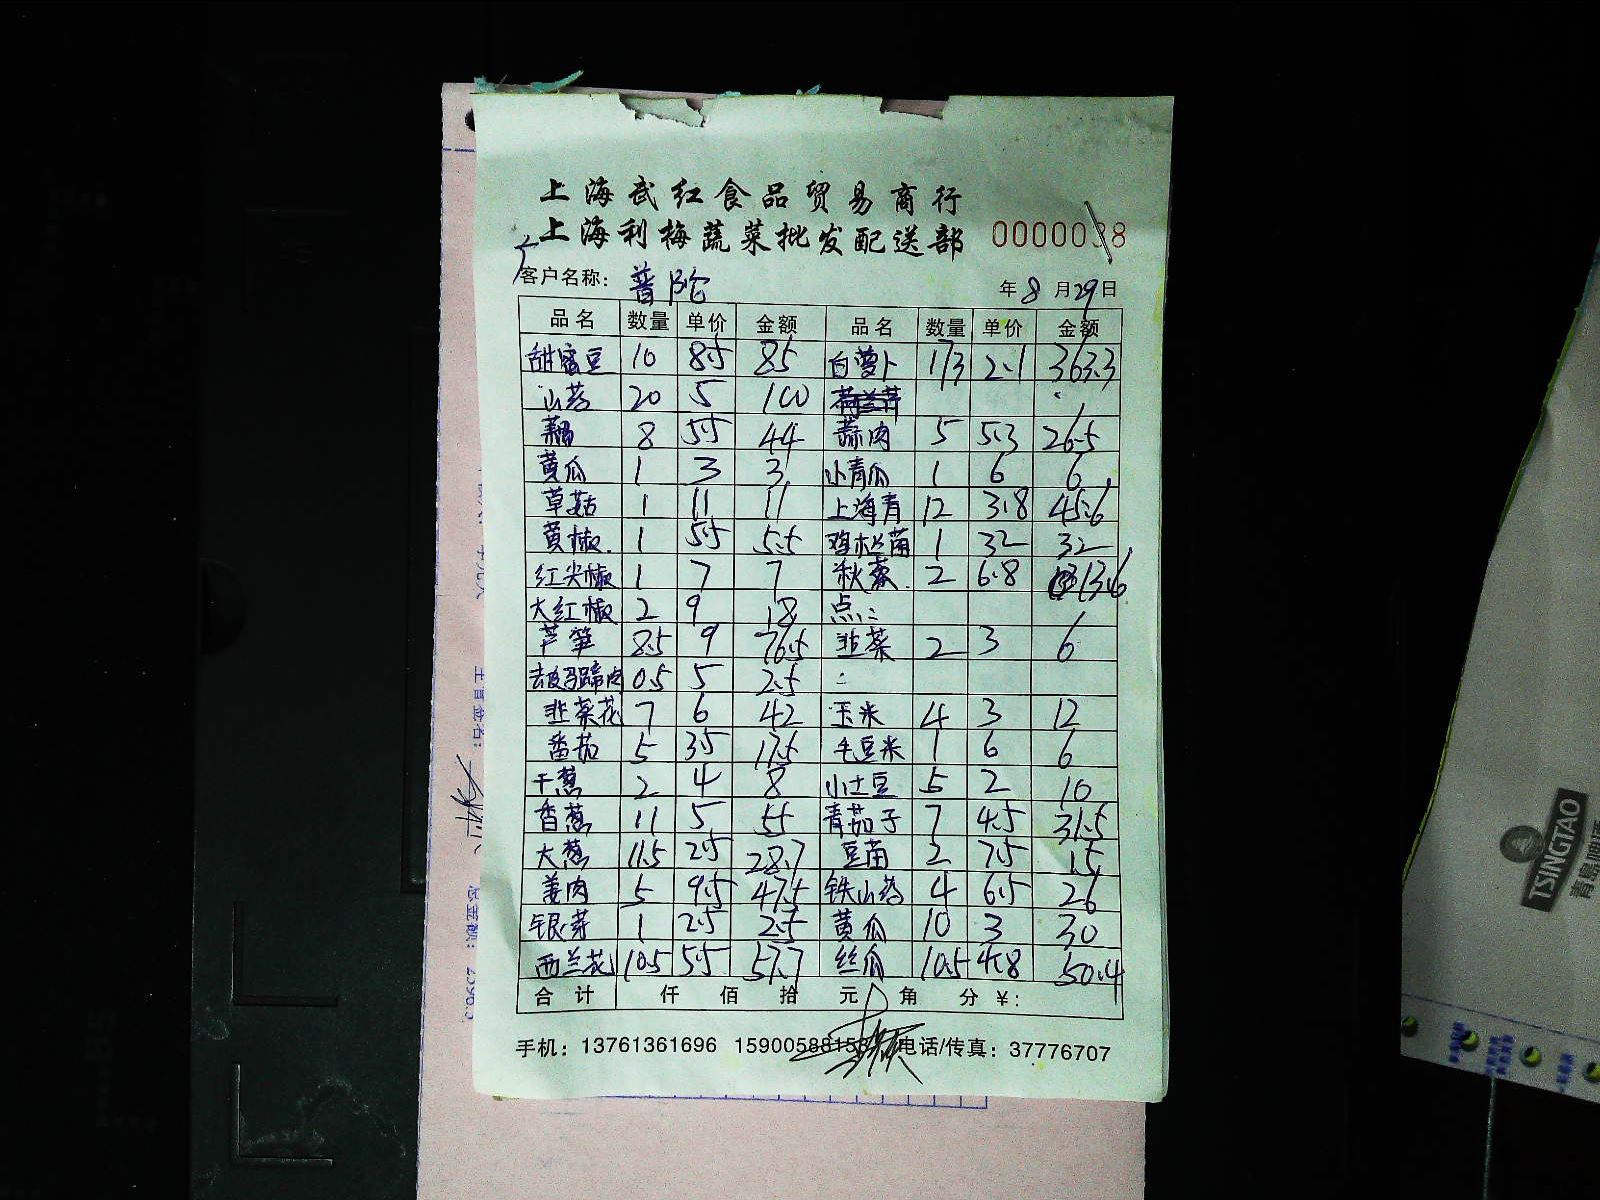 上海武红食品贸易商行
上海利梅蔬菜批发配送部 0000038
客户名称: 普陀 年 8 月 29 日
品名 数量 单价 金额 品名 数量 单价 金额
甜蜜豆 10 8.5 85 白萝卜 173 2.1 363.3
山药 20 5 100
藕 8 5.5 44 蒜肉 5 5.3 26.5
黄瓜 1 3 3 小青瓜 1 6 6
草菇 1 11 11 上海青 12 3.8 45.6
黄椒 1 5.5 5.5 鸡枞菌 1 32 32
红尖椒 1 7 7 秋葵 2 6.8 13.6
大红椒 2 9 18 点:
芦笋 8.5 9 76.5 韭菜 2 3 6
去皮马蹄肉 0.5 5 2.5
韭菜花 7 6 42 玉米 4 3 12
番茄 5 3.5 17.5 毛豆米 1 6 6
干葱 2 4 8 小土豆 5 2 10
香葱 11 5 55 青茄子 7 4.5 31.5
大葱 11.5 2.5 28.7 豆苗 2 7.5 15
姜肉 5 9.5 47.5 铁山药 4 6.5 26
银芽 1 2.5 2.5 黄瓜 10 3 30
西兰花 10.5 5.5 57.7 丝瓜 10.5 4.8 50.4
合计 仟 佰 拾 元 角 分 ¥:
手机: 13761361696 电话/传真: 37776707
主管签名:
总金额:
TSINGTAO
青島啤酒